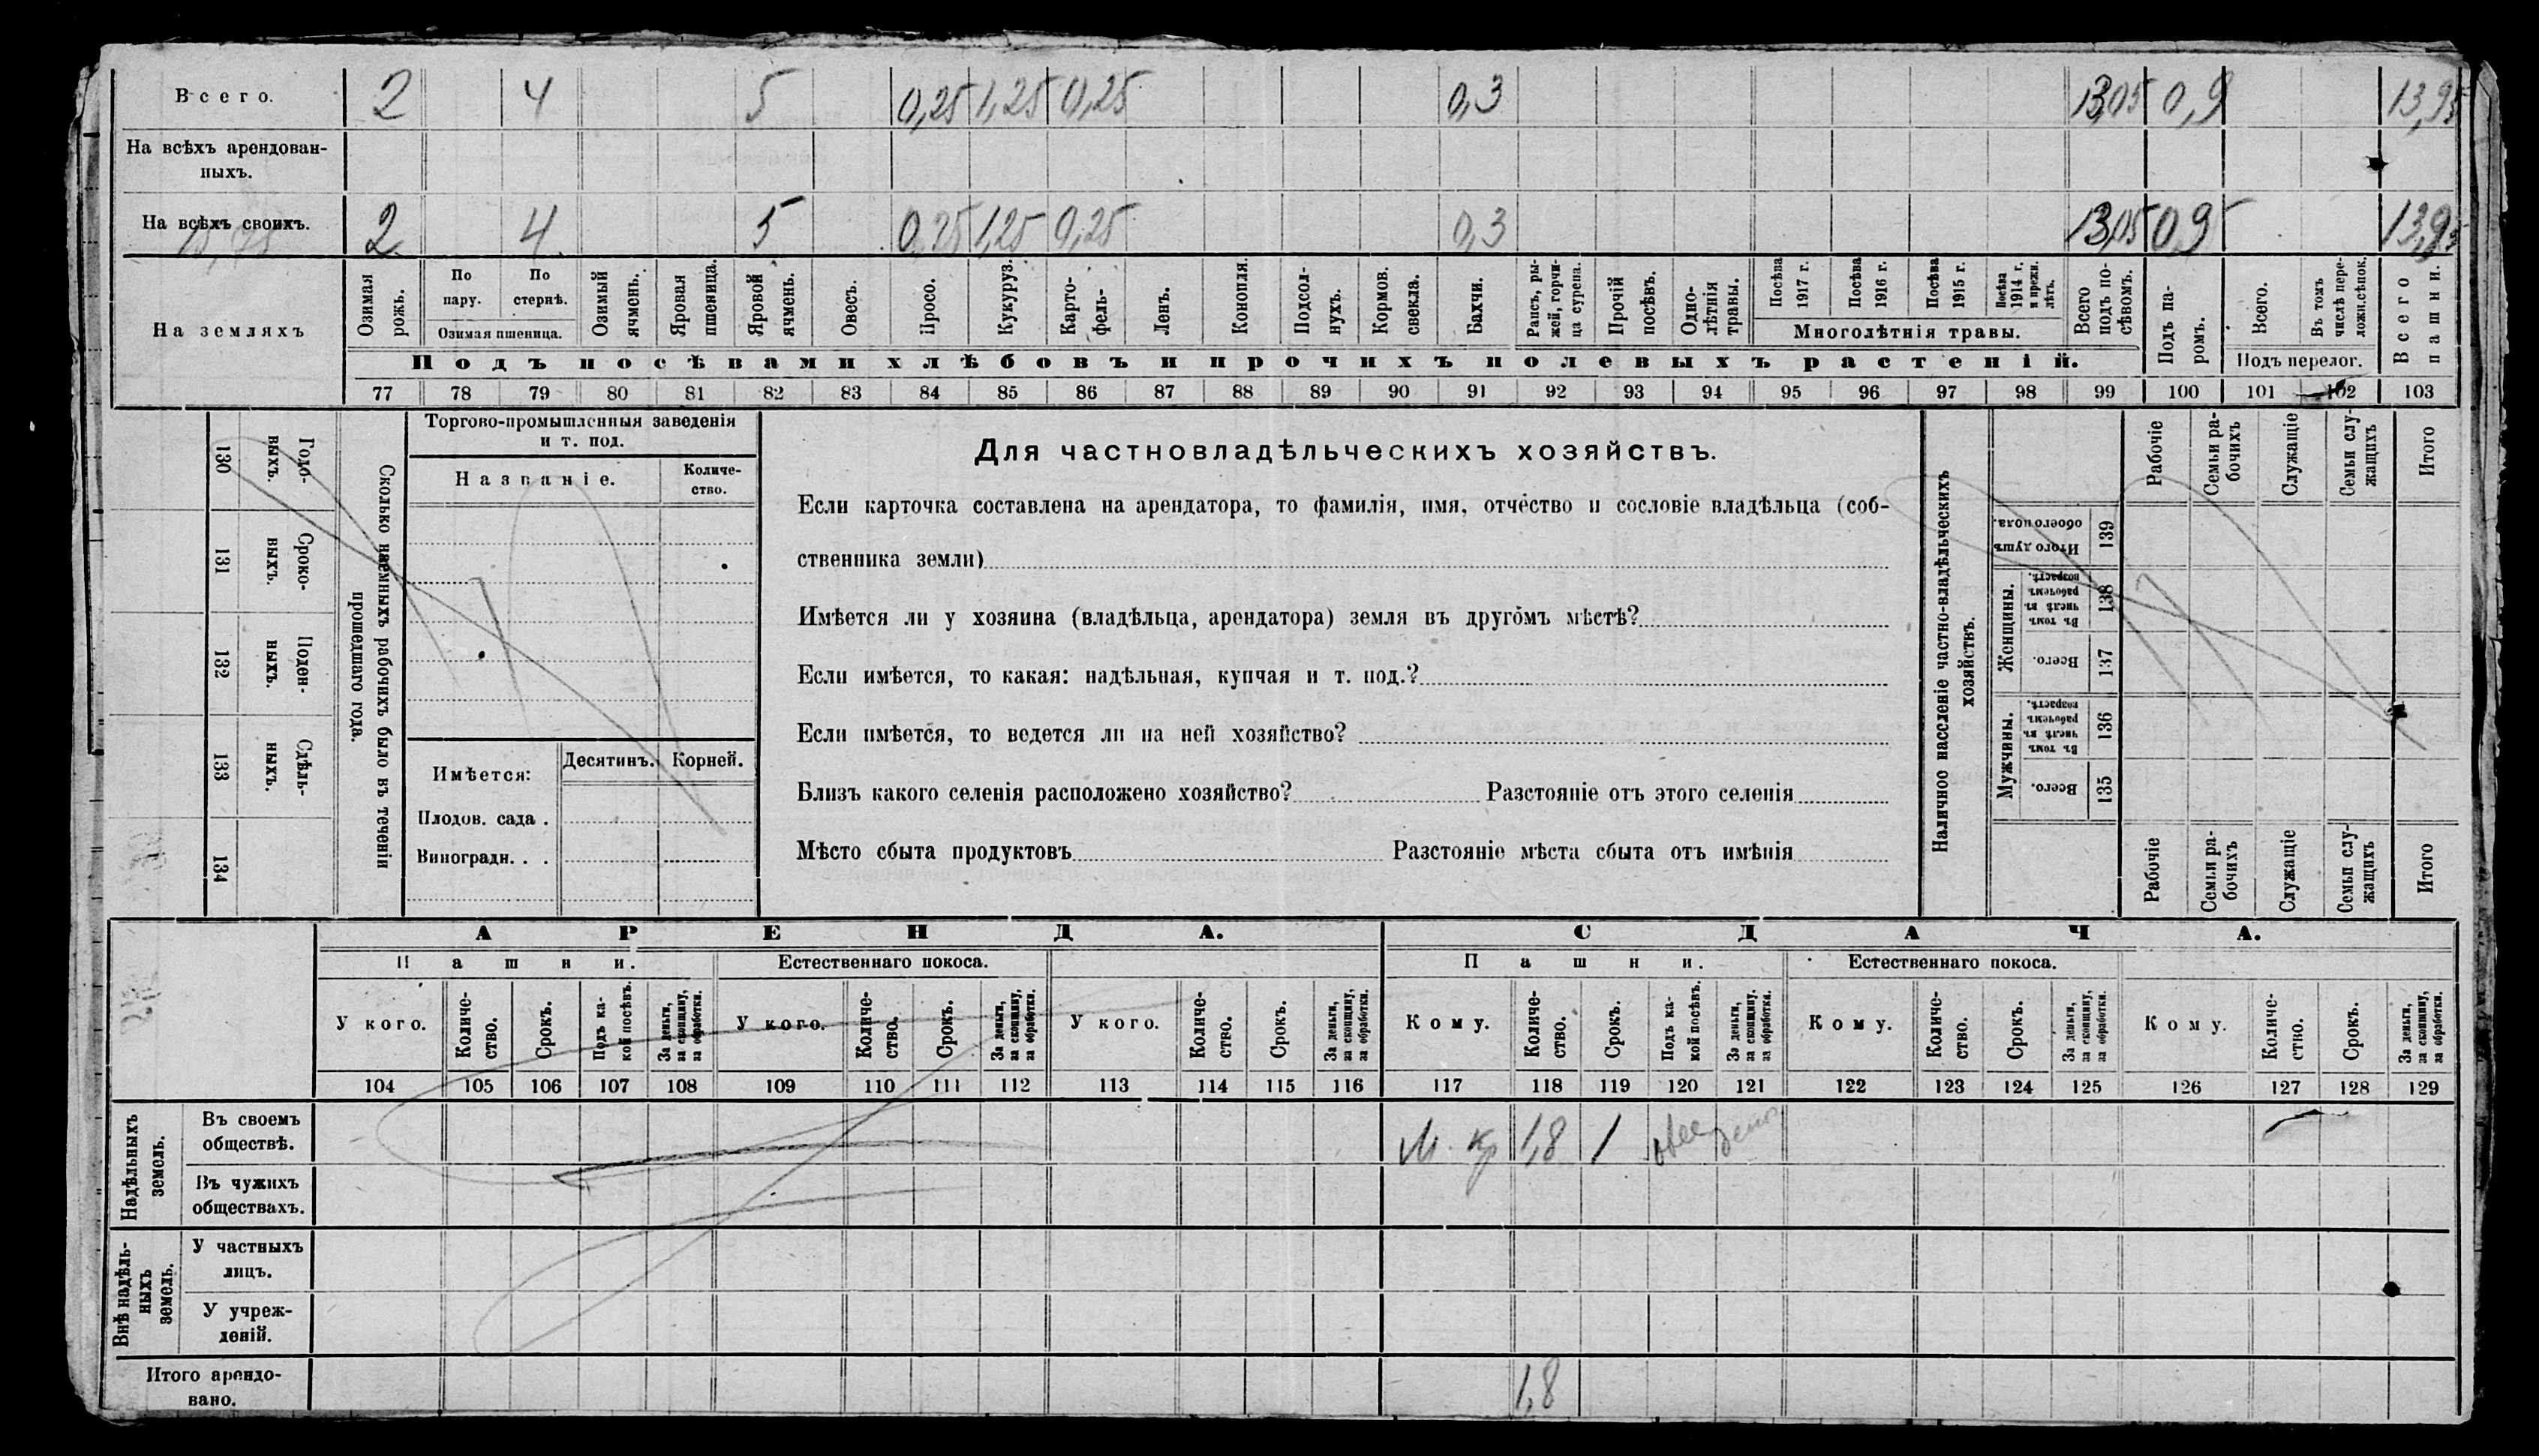 Всего. 2 4 5 0,25 1,25 0,25 0,3 13,05 0,9 13,95
На всѣхъ арендован-
ныхъ.
На всѣхъ своихъ. 2 4 5 0,25 1,25 0,25 0,3 13,05 0,9 13,95
На земляхъ
Озимая рожь.
По пару.
По стернѣ.
Озимая пшеница.
Озимый ячмень.
Яровая пшеница.
Яровой ячмень.
Овесъ.
Просо.
Кукуруз.
Карто-
фель-
Ленъ.
Конопля.
Подсол-
нухъ.
Кормов.
свекла.
Бахчи.
Рапсъ, ры-
жей, горчи-
ца сурепа.
Прочій
посѣвъ.
Одно-
лѣтнія
травы.
Посѣва
1917 г.
Посѣва
1916 г.
Посѣва
1915 г.
Посѣва
1914 г.
и прежн.
лѣтъ.
Многолѣтнія травы.
Всего
подъ по-
сѣвомъ.
Подъ па-
ромъ.
Всего.
Въ томъ
числѣ пере-
ложн.сѣнок.
Подъ перелог.
Всего
пашни.
Подъ посѣвами хлѣбовъ и прочихъ полевыхъ растеній.
77 78 79 80 81 82 83 84 85 86 87 88 89 90 91 92 93 94 95 96 97 98 99 100 101 102 103
130 Годо-
выхъ.
131 Сроко-
выхъ.
132 Поден-
ныхъ.
133 Сдѣль-
ныхъ.
134
Сколько наемныхъ рабочихъ было въ теченіи
прошедшаго года.
Торгово-промышленныя заведенія
и т. под.
Названіе.
Количе-
ство.
Имѣется: Десятинъ. Корней.
Плодов. сада .
Виноградн. . .
Для частновладѣльческихъ хозяйствъ.
Если карточка составлена на арендатора, то фамилія, имя, отчество и сословіе владѣльца (соб-
ственника земли)
Имѣется ли у хозяина (владѣльца, арендатора) земля въ другомъ мѣстѣ?
Если имѣется, то какая: надѣльная, купчая и т. под.?
Если имѣется, то ведется ли на ней хозяйство?
Близъ какого селенія расположено хозяйство? Разстояніе отъ этого селенія
Мѣсто сбыта продуктовъ Разстояніе мѣста сбыта отъ имѣнія
Наличное населеніе частно-владѣльческихъ
хозяйствъ.
Рабочіе
Семьи ра-
бочихъ
Служащіе
Семьи слу-
жащихъ
Итого
Итого душъ
обоего пола.
139
Женщины.
Въ томъ
числѣ въ
рабочемъ
возрастѣ.
138
Всего.
137
Мужчины.
Въ томъ
числѣ въ
рабочемъ
возрастѣ.
136
Всего.
135
Рабочіе
Семьи ра-
бочихъ
Служащіе
Семьи слу-
жащихъ
Итого
АРЕНДА. СДАЧА.
Пашни. Естественнаго покоса. Пашни. Естественнаго покоса.
У кого.
Количе-
ство.
Срокъ.
Подъ ка-
кой посѣвъ.
За деньги,
за скопщину,
за обработки.
У кого.
Количе-
ство.
Срокъ.
За деньги,
за скопщину,
за обработки.
У кого.
Количе-
ство.
Срокъ.
За деньги,
за скопщину,
за обработки.
Кому.
Количе-
ство.
Срокъ.
Подъ ка-
кой посѣвъ.
За деньги,
за скопщину,
за обработки.
Кому.
Количе-
ство.
Срокъ.
За деньги,
за скопщину,
за обработки.
Кому.
Количе-
ство.
Срокъ.
За деньги,
за скопщину,
за обработки.
104 105 106 107 108 109 110 111 112 113 114 115 116 117 118 119 120 121 122 123 124 125 126 127 128 129
Надѣльныхъ
земель.
Въ своемъ
обществѣ. М. кр 1,8 1
Въ чужихъ
обществахъ.
Внѣ надѣль-
ныхъ
земель.
У частныхъ
лицъ.
У учреж-
деній.
Итого арендо-
вано. 1,8